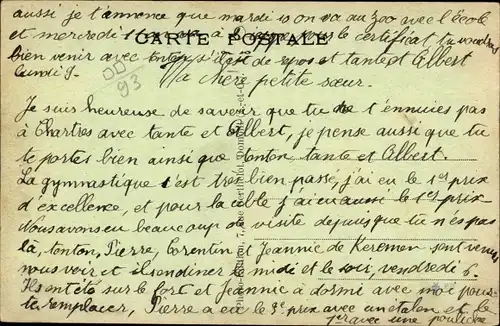 aussi je t'annonce que mardi 10 on va au zoo avec l'école
et mercredi 11 on va à pour le certificat tu voudras
CARTE POSTALE
bien venir avec tonton s'il est de repos et tante et Albert
lundi 9.
Ma chère petite sœur.
93
Je suis heureuse de savoir que tu ne t'ennuies pas
à Chartres avec tante et Albert, je pense aussi que tu
te portes bien ainsi que tonton tante et Albert.
La gymnastique s'est très bien passé, j'ai eu le 1er prix
d'excellence, et pour la cible j'ai eu aussi le 1er prix
Nous avons eu beaucoup de visite depuis que tu n'es pas
là, tonton, Pierre, Corentin et Jeannic de Keromen sont venus
nous voir et ils ont dîner le midi et le soir, vendredi 6.
Ils ont été sur le Fort et Jeannic à dormi avec moi pour
te remplacer, Pierre a eu le 3e prix avec un étalon et le
1er avec une pouliche